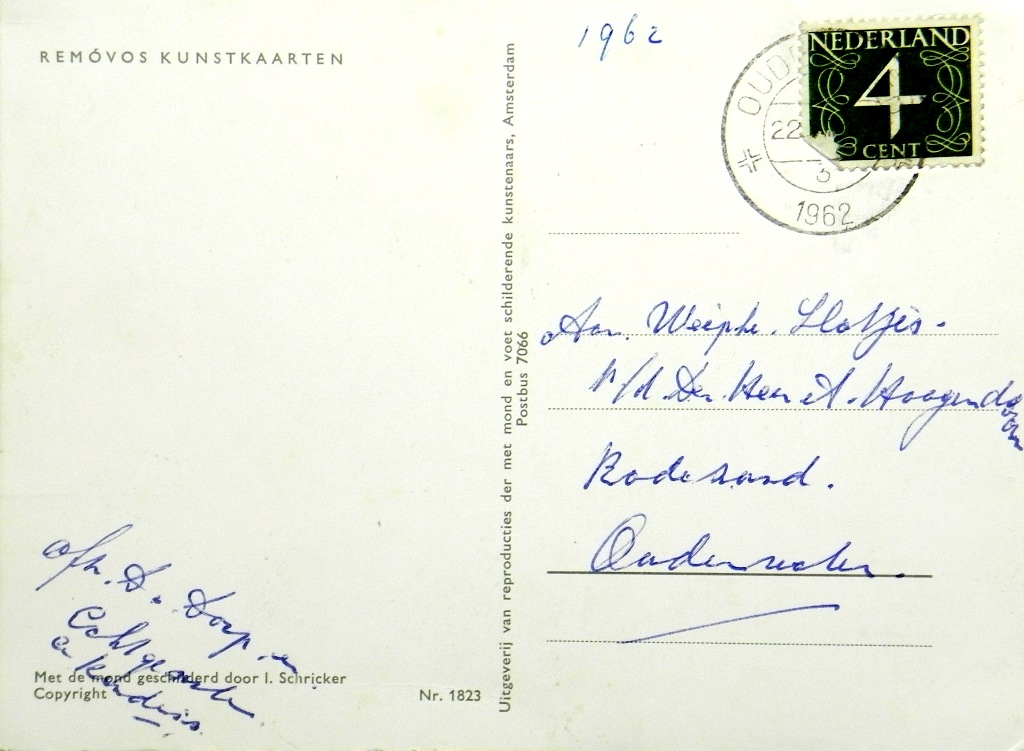 REMÓVOS KUNSTKAARTEN
1962
NEDERLAND
4
CENT
OUD
22
3
1962
Uitgeverij van reproducties der met mond en voet schilderende kunstenaars, Amsterdam
Postbus 7066
Aan. Weiphe. Slotjes.
p/d. Den Heer A. Hoogendoorn
Rodezand.
Oudewater.
afz. D. Dorp en
Echtgenote
en kinders.
Met de mond geschilderd door I. Schricker
Copyright
Nr. 1823